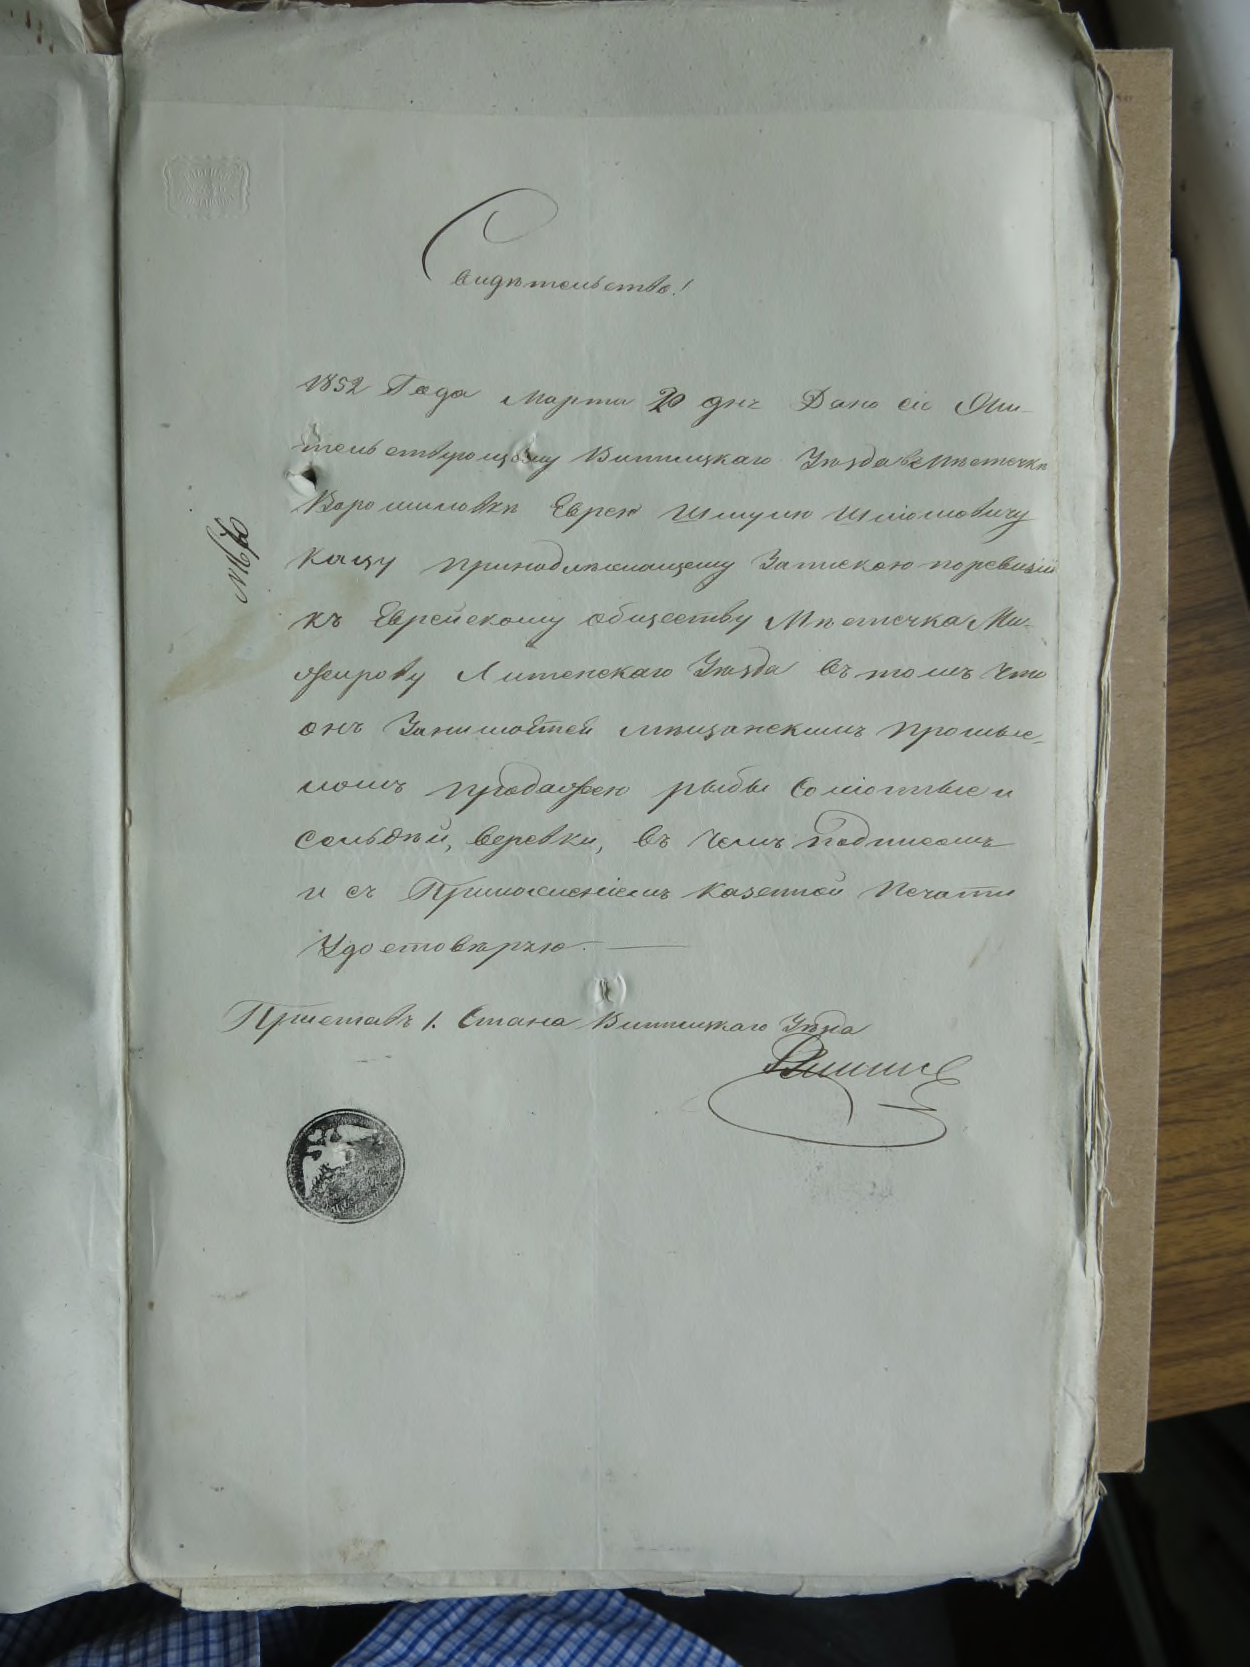 Свидѣтельство!
1852 Года Марта 20 днъ Дано сіе Жи-
тельствующему Винницкаго Уѣзда в Мѣстечкѣ
Ворошиловкѣ Еврею Шмулю Шліомовичу
Кацу принадлежащему Запискою по ревизіи
къ Еврейскому обществу Мѣстечка Ми-
жирову Литенскаго Уѣзда въ томъ что
онъ Занимается мѣщанскимъ промыс-
ломъ продажею рыбы Соліонные и
сельдѣй, веревки, въ чемъ подписомъ
и съ Приложеніемъ Казенной Печати
Удостовѣряю.
Приставъ 1. Стана Винницкаго Уѣзда